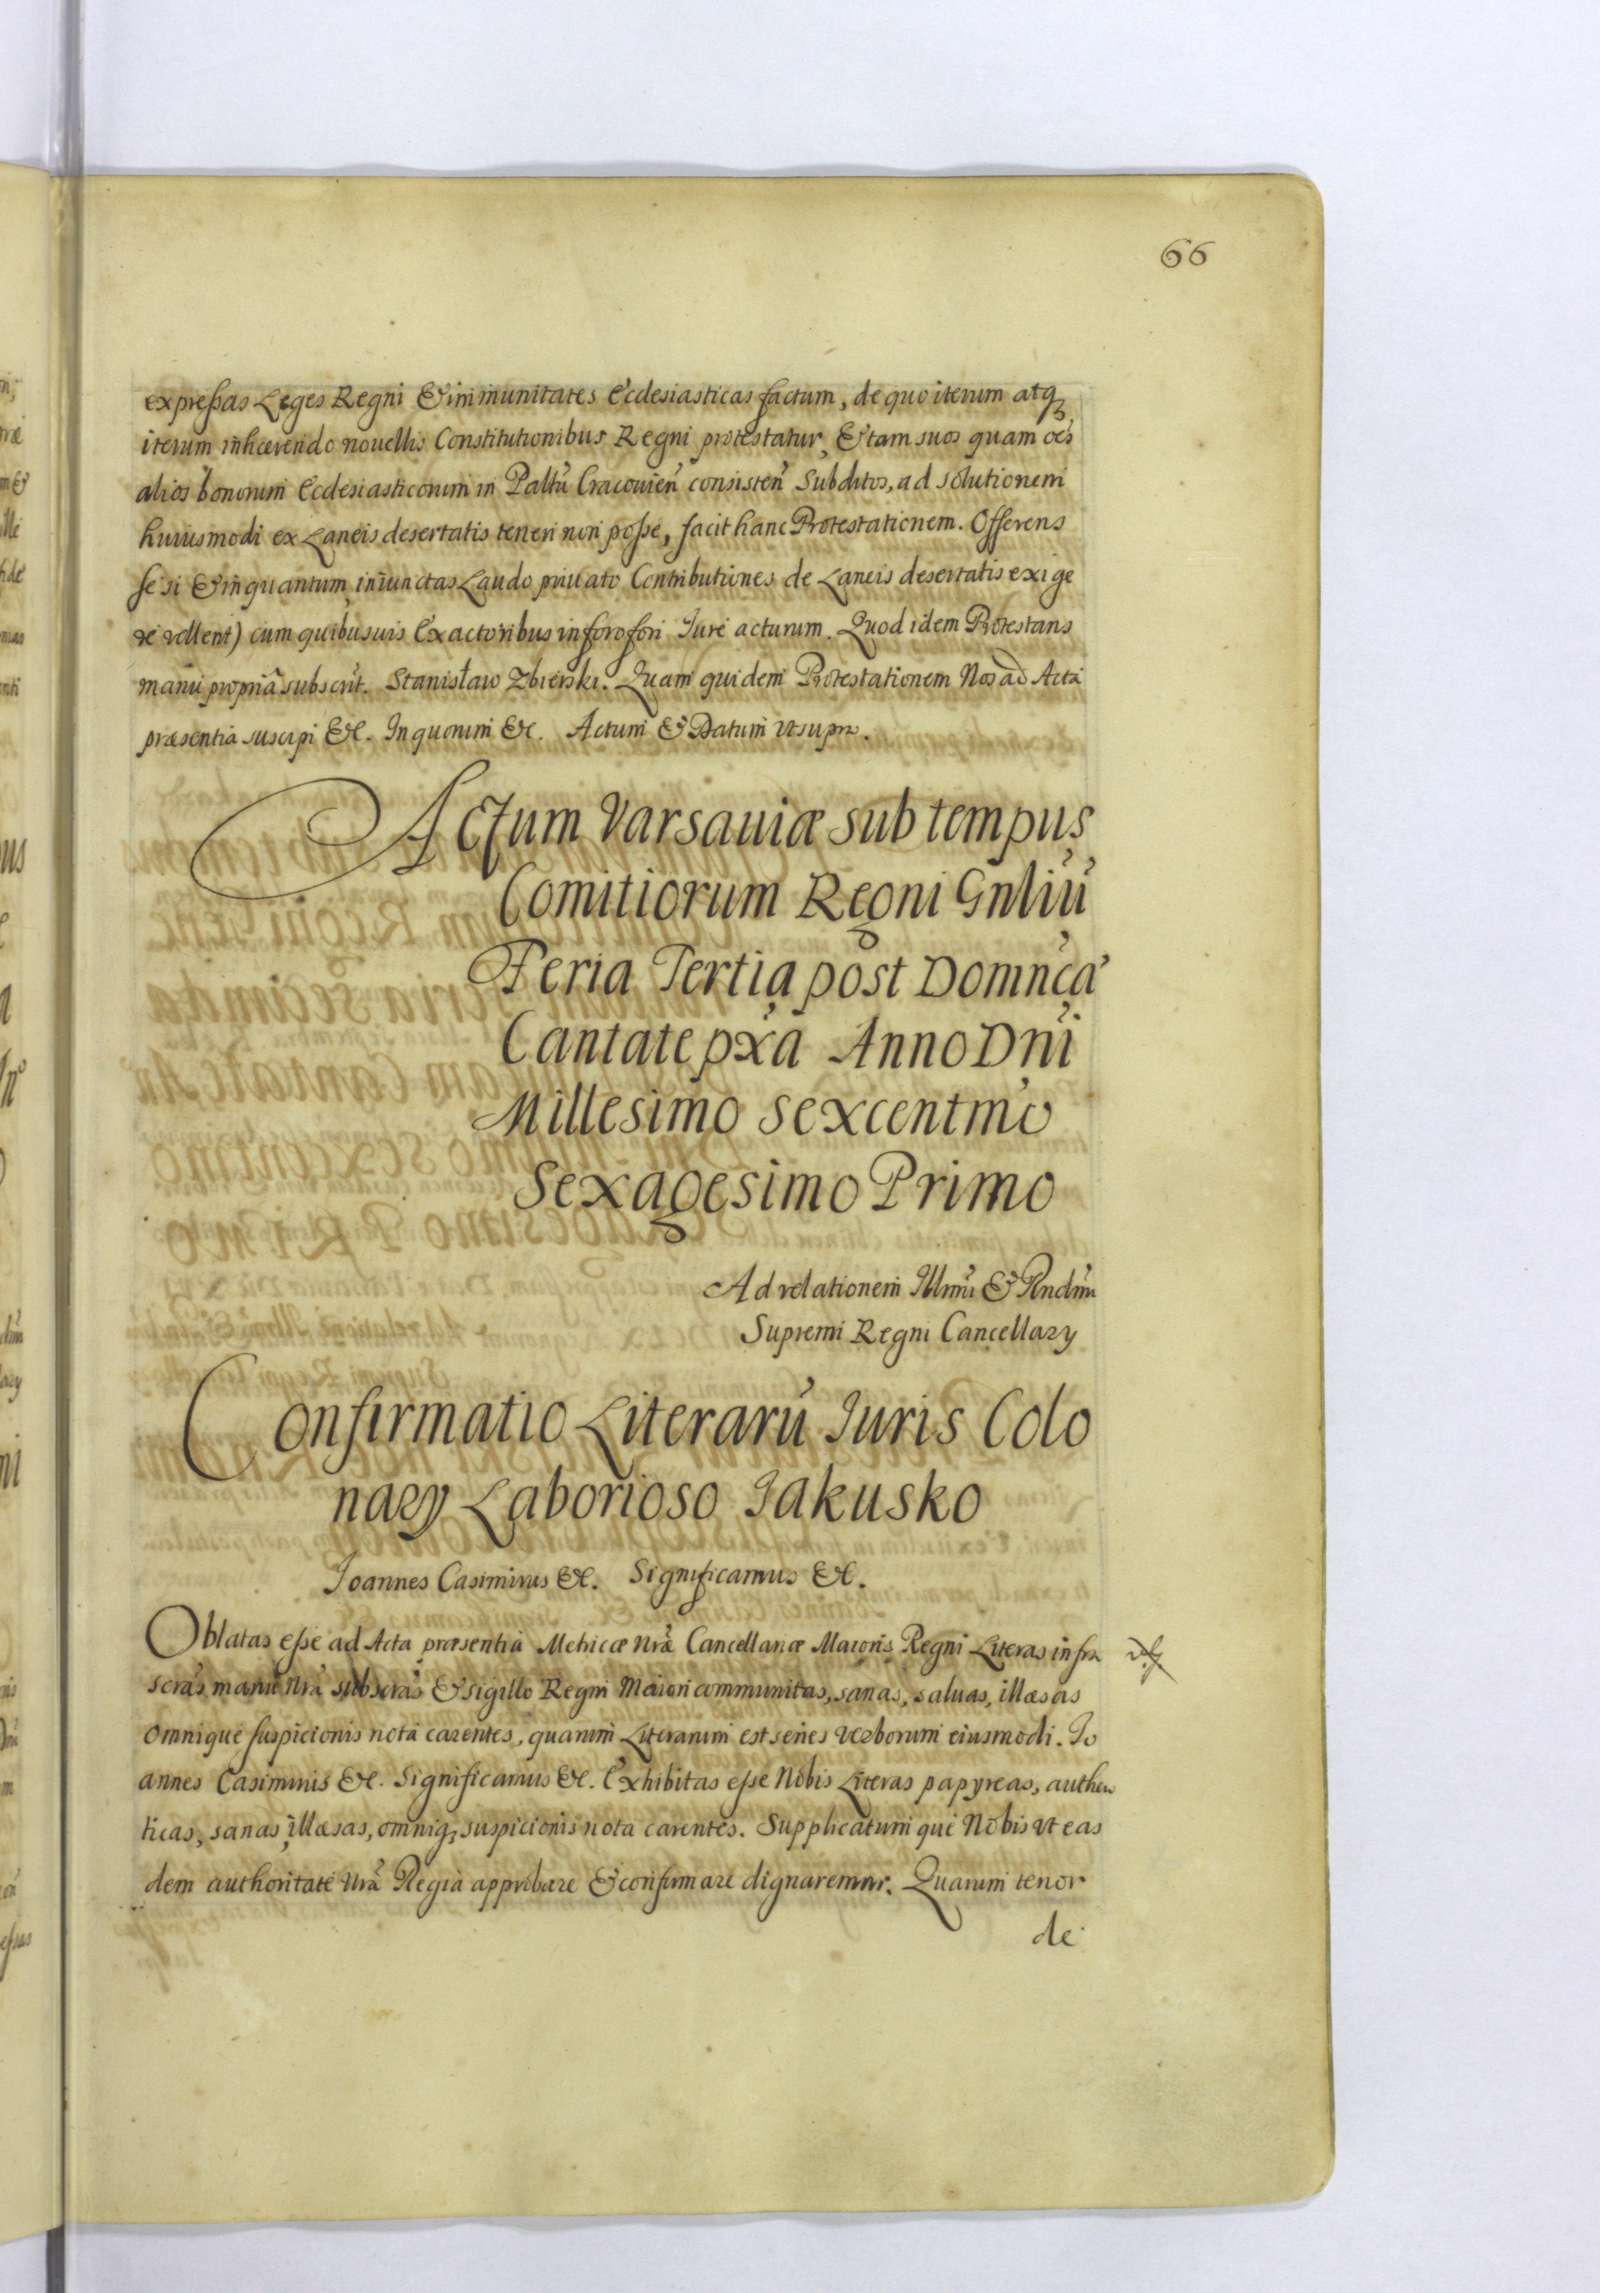 66
expressas Leges Regni & immunitates Ecclesiasticas factum, de quo iterum atq;
iterum inhærendo nouellis Constitutionibus Regni protestatur, & tam suos quam oēs
alios bonorum Ecclesiasticorum in Palttū Cracouień consisteń Subditos, ad solutionem
huiusmodi ex Laneis desertatis teneri non posse, facit hanc Protestationem. Offerens
se si & inquantum iniunctas Laudo priuato Contributiones de Laneis desertatis exige
re vellent) cum quibusuis Exactoribus in foro fori Iure acturum. Quod idem Protestans
manu propria subscrit. Stanisław Zbierski. Quam quidem Protestationem Nos ad Acta
præsentia suscipi &c. In quorum &c. Actum & Datum ut supra.
Actum Varsauiæ sub tempus
Comitiorum Regni Gnliū
Feria Tertia post Domncā
Cantate pxa Anno Dni
Millesimo sexcentmo
Sexagesimo Primo
Ad relationem Illmi & Rndmi
Supremi Regni Cancellary
Confirmatio Literarū Iuris Colo
nary Laborioso Jakusko
Ioannes Casimirus &c. Significamus &c.
Oblatas esse ad Acta præsentia Metricæ Nræ Cancellariæ Maioris Regni Literas infra
scras manu Nra subscras & sigillo Regni Maiori communitas, sanas, saluas, illæsas
omnique suspicionis nota carentes, quarum Literarum est series verborum eiusmodi. Io
annes Casimirus &c. Significamus &c. Exhibitas esse Nobis Literas papyreas, authen
ticas, sanas, illæsas, omniq; suspicionis nota carentes. Supplicatum que Nobis ut eas
dem authoritate Nra Regia approbare & confirmare dignaremur. Quarum tenor
de